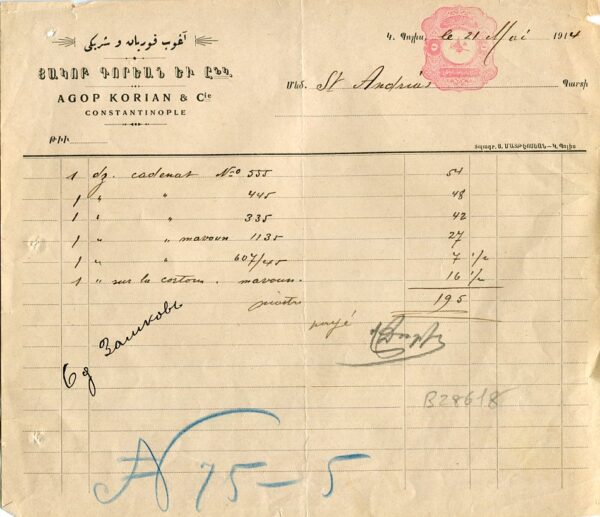 آغوب قوریان و شریکی
ՅԱԿՈԲ ԳՈՐԵԱՆ ԵՒ ԸՆԿ.
AGOP KORIAN & Cie
CONSTANTINOPLE
Կ. Պոլիս, le 21 Mai 1914
Մեծ. St Andrias Պարտի
Թիւ
Տպագր. Յ. ՄԱՏԹԷՈՍԵԱՆ - Կ. Պոլիս
1 dz. cadenat No 555 54
1 " " 445 48
1 " " 335 42
1 " " mavoun 1135 27
1 " " 607/45 7 1/2
1 " sur la mavoun. 16 1/2
195
payé
6 д Замковъ
B28618
N 75-5